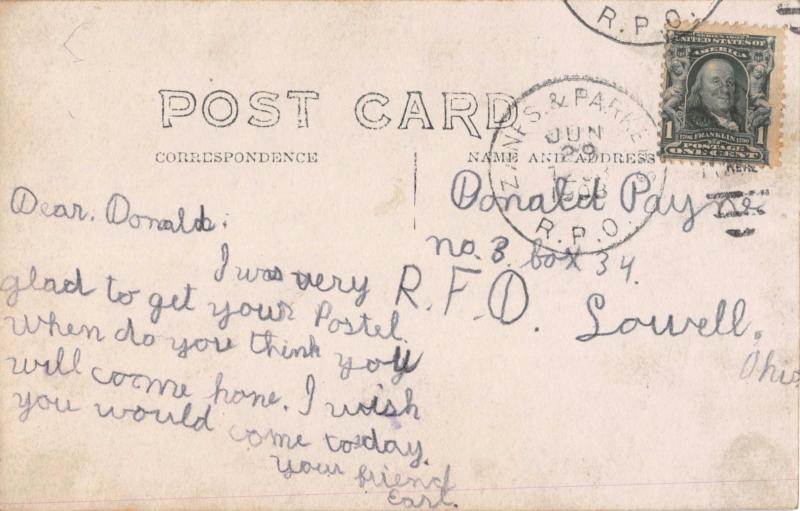 R.P.O.
SERIES 1902
UNITED STATES OF
AMERICA
1 1706 FRANKLIN 1790 1
POSTAGE
ONE CENT
POST CARD
ZANES. & PARKERS
JUN
29
1908
R.P.O.
CORRESPONDENCE
NAME AND ADDRESS
HERE
Dear. Donald.
I was very
glad to get your Postel.
when do you think you
will come home. I wish
you would come to day.
your friend
Earl.
Donald Payne
no. 3. box 34.
R. F. D.
Lowell.
Ohio